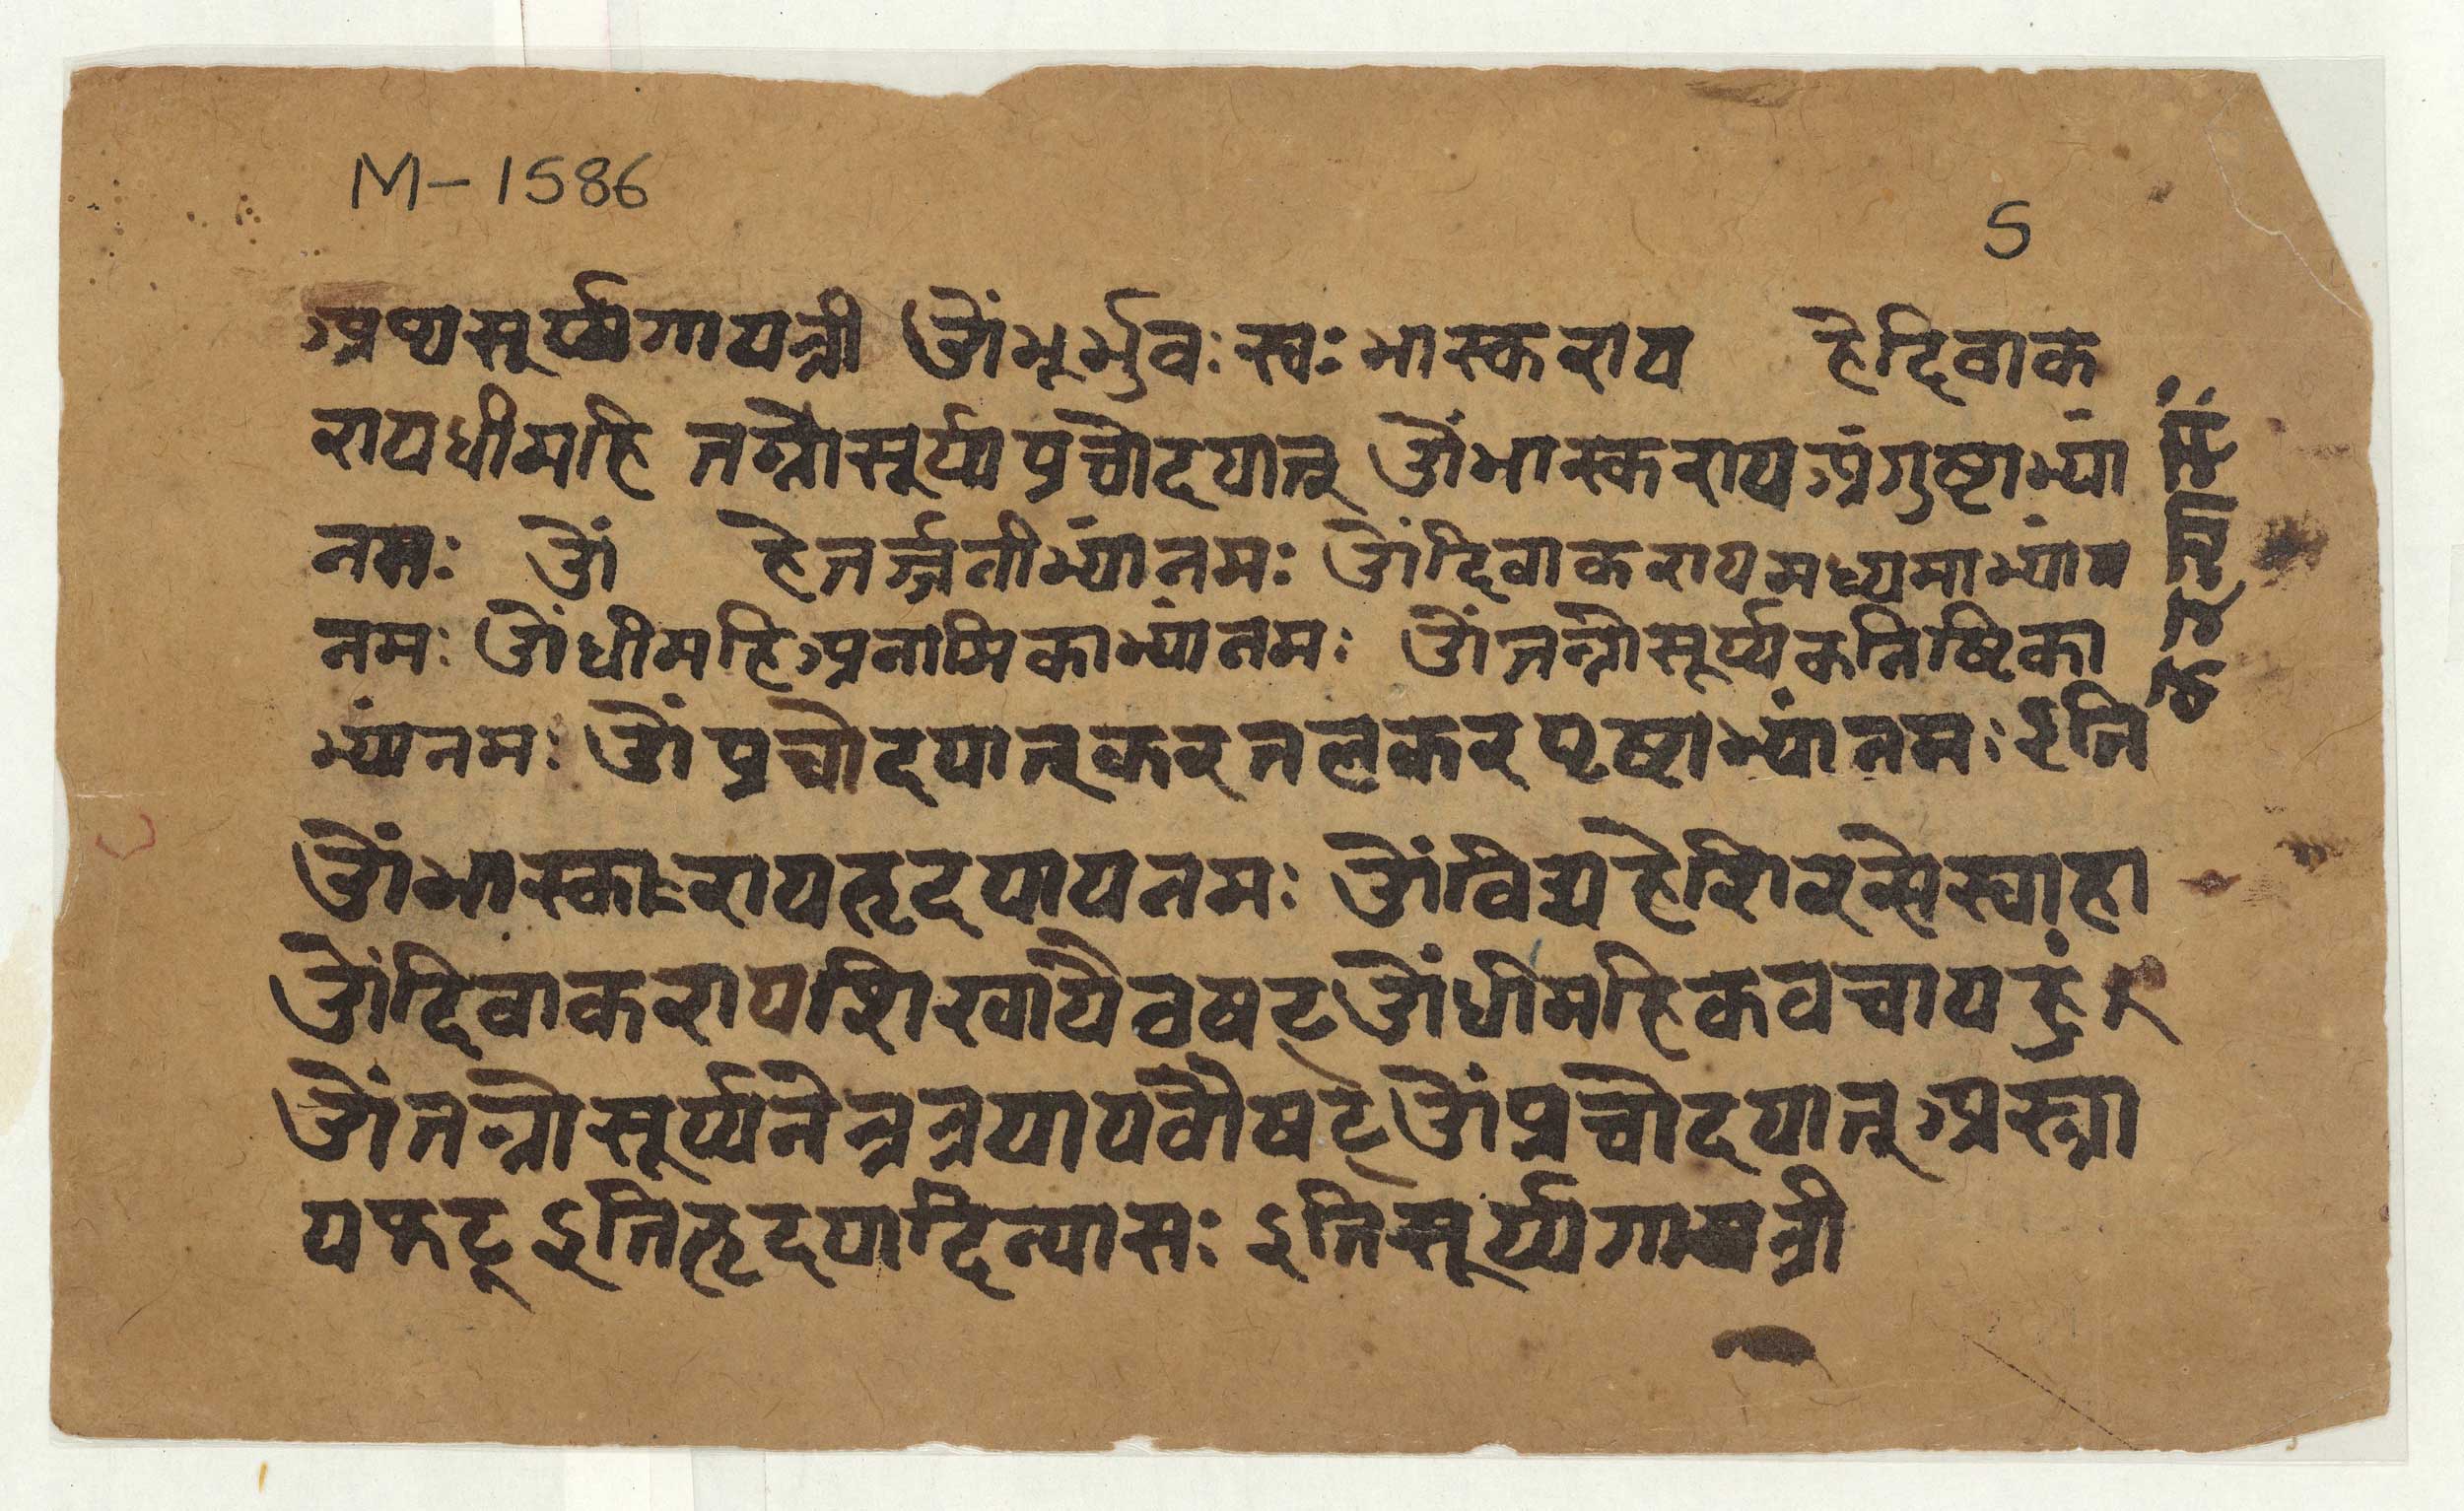 M-1586
5
अथ सूर्य्यगायत्री ओं भूर्भुवः स्वः भास्कराय हे दिवाक
राय धीमहि तन्नो सूर्य्य प्रचोदयात् ओं भास्कराय अंगुष्टाभ्यां
नमः ओं हे तर्ज्जनीभ्यां नमः ओं दिवाकराय मध्यमाभ्यां न
नमः ओं धीमहि अनामिकाभ्यां नमः ओं तन्नो सूर्य्य कनिष्टिका
भ्यां नमः ओं प्रचोदयात् करतलकरपृष्टाभ्यां नमः इति
ओं भास्काराय हृदयाय नमः ओं विद्महे शिरसे स्वाहा
ओं दिवाकराय शिखायै वषट् ओं धीमहि कवचाय हुं
ओं तन्नो सूर्य्य नेत्रत्रयाय वौषट् ओं प्रचोदयात् अस्त्रा
य फट् इति हृदयादिन्यासः इति सूर्य्यगायत्री